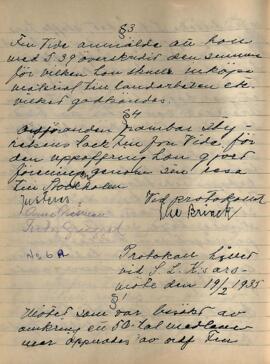 §3
Fru Vide anmälde att hon
med 5.39 överskridit den summa
för vilken hon skulle inköpa
material till handarbeten
vilket godkändes.
§4
Ordföranden frambar Sty-
relsens tack till fru Vide för
den uppoffring hon gjort
föreningen genom sin resa
till Stockholm
Justeras Vid protokollet
No 6 A Protokoll fört
vid S. L. K:s års-
möte den 19/2 1935
§1
Mötet som var besökt av
omkring ett 50-tal medlemmar
öppnades av ordf.